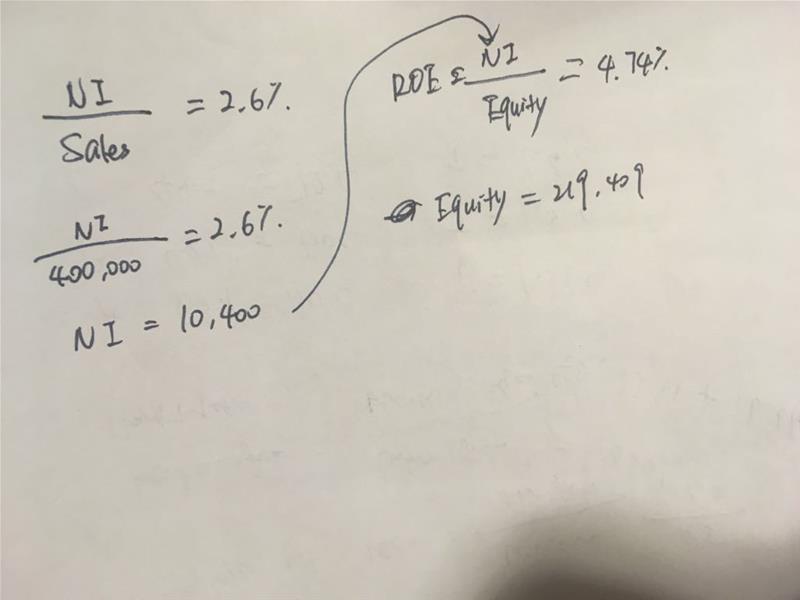 NI
Sales = 2.6%.
NI
400,000 = 2.6%.
NI = 10,400
ROE = NI
Equity = 4.74%.
Equity = 219,409